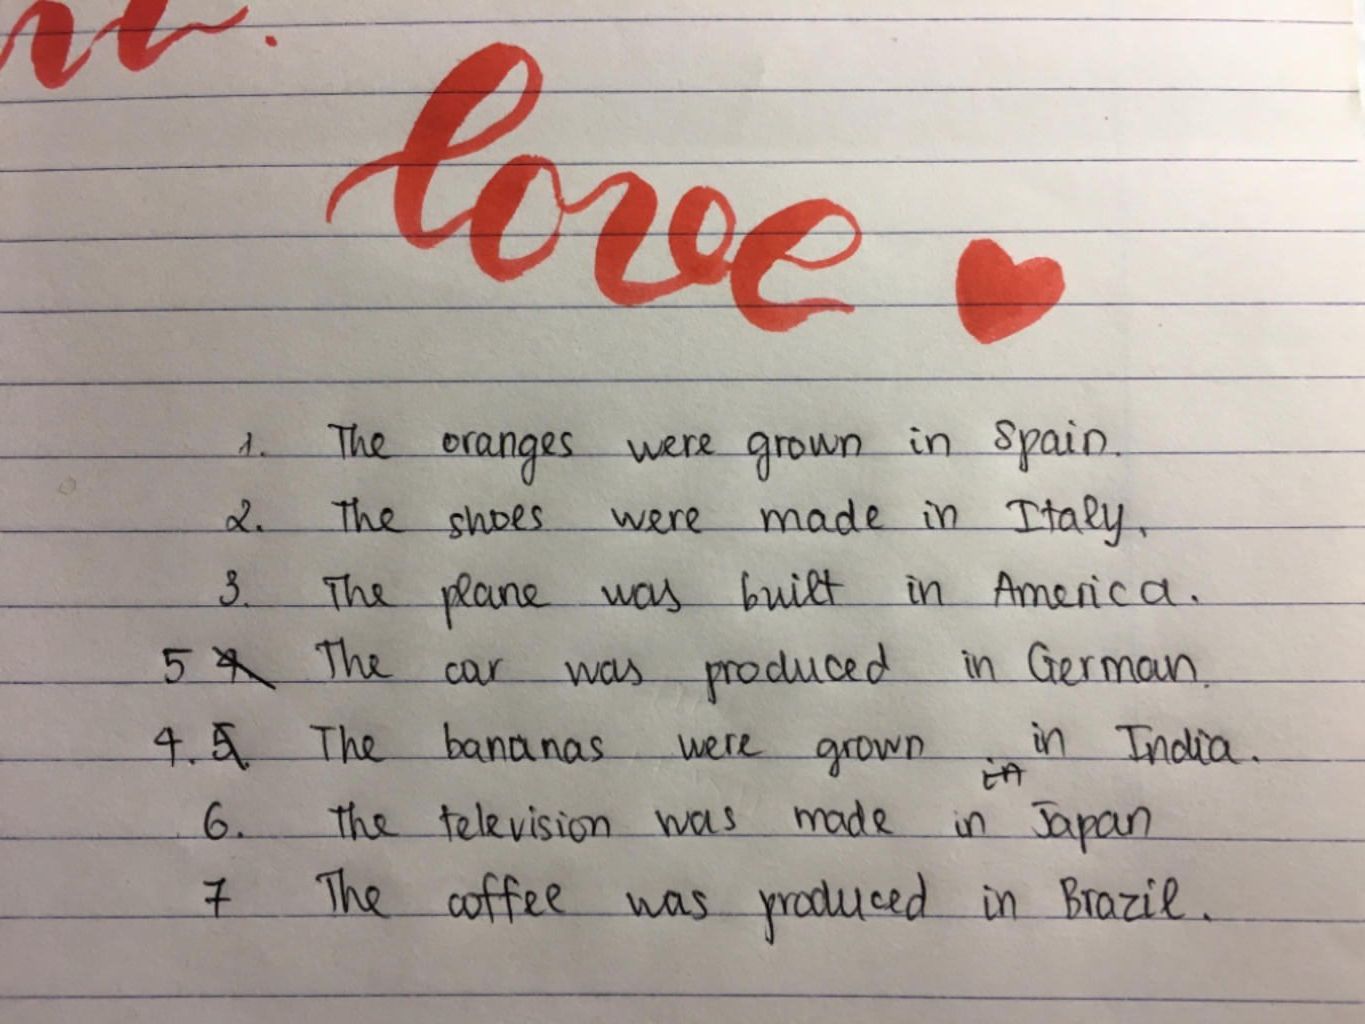 love
1. The oranges were grown in Spain.
2. The shoes were made in Italy.
3. The plane was built in America.
5 4 The car was produced in German.
4. 5 The bananas were grown in India.
in
6. The television was made in Japan
7 The coffee was produced in Brazil.